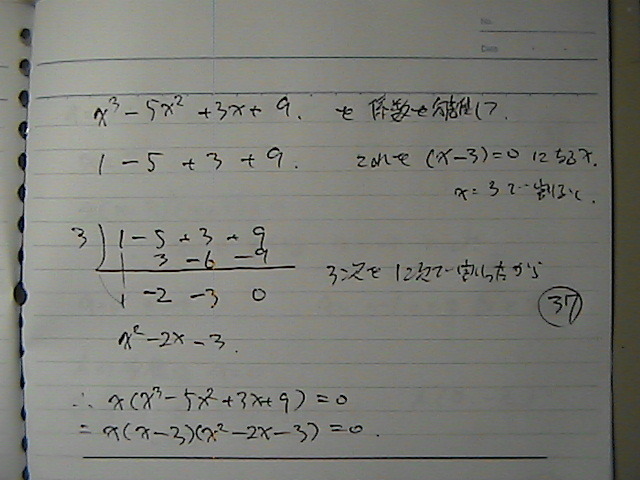 No.
Date
x³ - 5x² + 3x + 9. を 係数を分離して.
1 - 5 + 3 + 9. これを (x-3)=0 になる x.
x = 3 で割ると.
3 ) 1 - 5 + 3 + 9
3 - 6 - 9
1 - 2 - 3 0
3次を1次で割ったから
37
x² - 2x - 3.
∴ x(x³ - 5x² + 3x + 9) = 0
= x(x-3)(x² - 2x - 3) = 0.